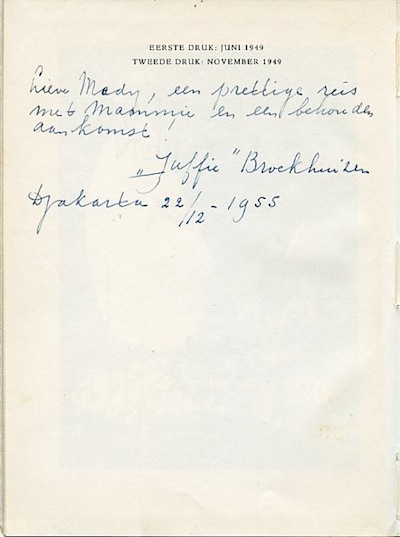 EERSTE DRUK: JUNI 1949
TWEEDE DRUK: NOVEMBER 1949
Lieve Mady, een prettige reis
met Mammie en een behouden
aankomst!
„Juffie" Broekhuizen
Djakarta 22/12 - 1955